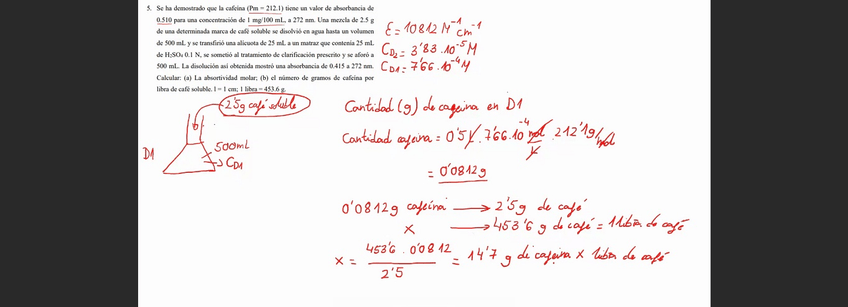 5. Se ha demostrado que la cafeína (Pm = 212.1) tiene un valor de absorbancia de
0.510 para una concentración de 1 mg/100 mL, a 272 nm. Una mezcla de 2.5 g
de una determinada marca de café soluble se disolvió en agua hasta un volumen
de 500 mL y se transfirió una alícuota de 25 mL a un matraz que contenía 25 mL
de H₂SO₄ 0.1 N, se sometió al tratamiento de clarificación prescrito y se aforó a
500 mL. La disolución así obtenida mostró una absorbancia de 0.415 a 272 nm.
Calcular: (a) La absortividad molar; (b) el número de gramos de cafeína por
libra de café soluble. l = 1 cm; 1 libra = 453.6 g.
Ɛ = 10812 M⁻¹ cm⁻¹
C_D2 = 3'83·10⁻⁵ M
C_D1 = 7'66·10⁻⁴ M
2'5g café soluble
D1
500mL
C_D1
Cantidad (g) de cafeina en D1
Cantidad cafeina = 0'5 L · 7'66·10⁻⁴ mol/L · 212'1 g/mol
= 0'0812 g
0'0812 g cafeína → 2'5 g de café
x → 453'6 g de café = 1 libra de café
x = 453'6 · 0'0812 / 2'5 = 14'7 g de cafeina x libra de café